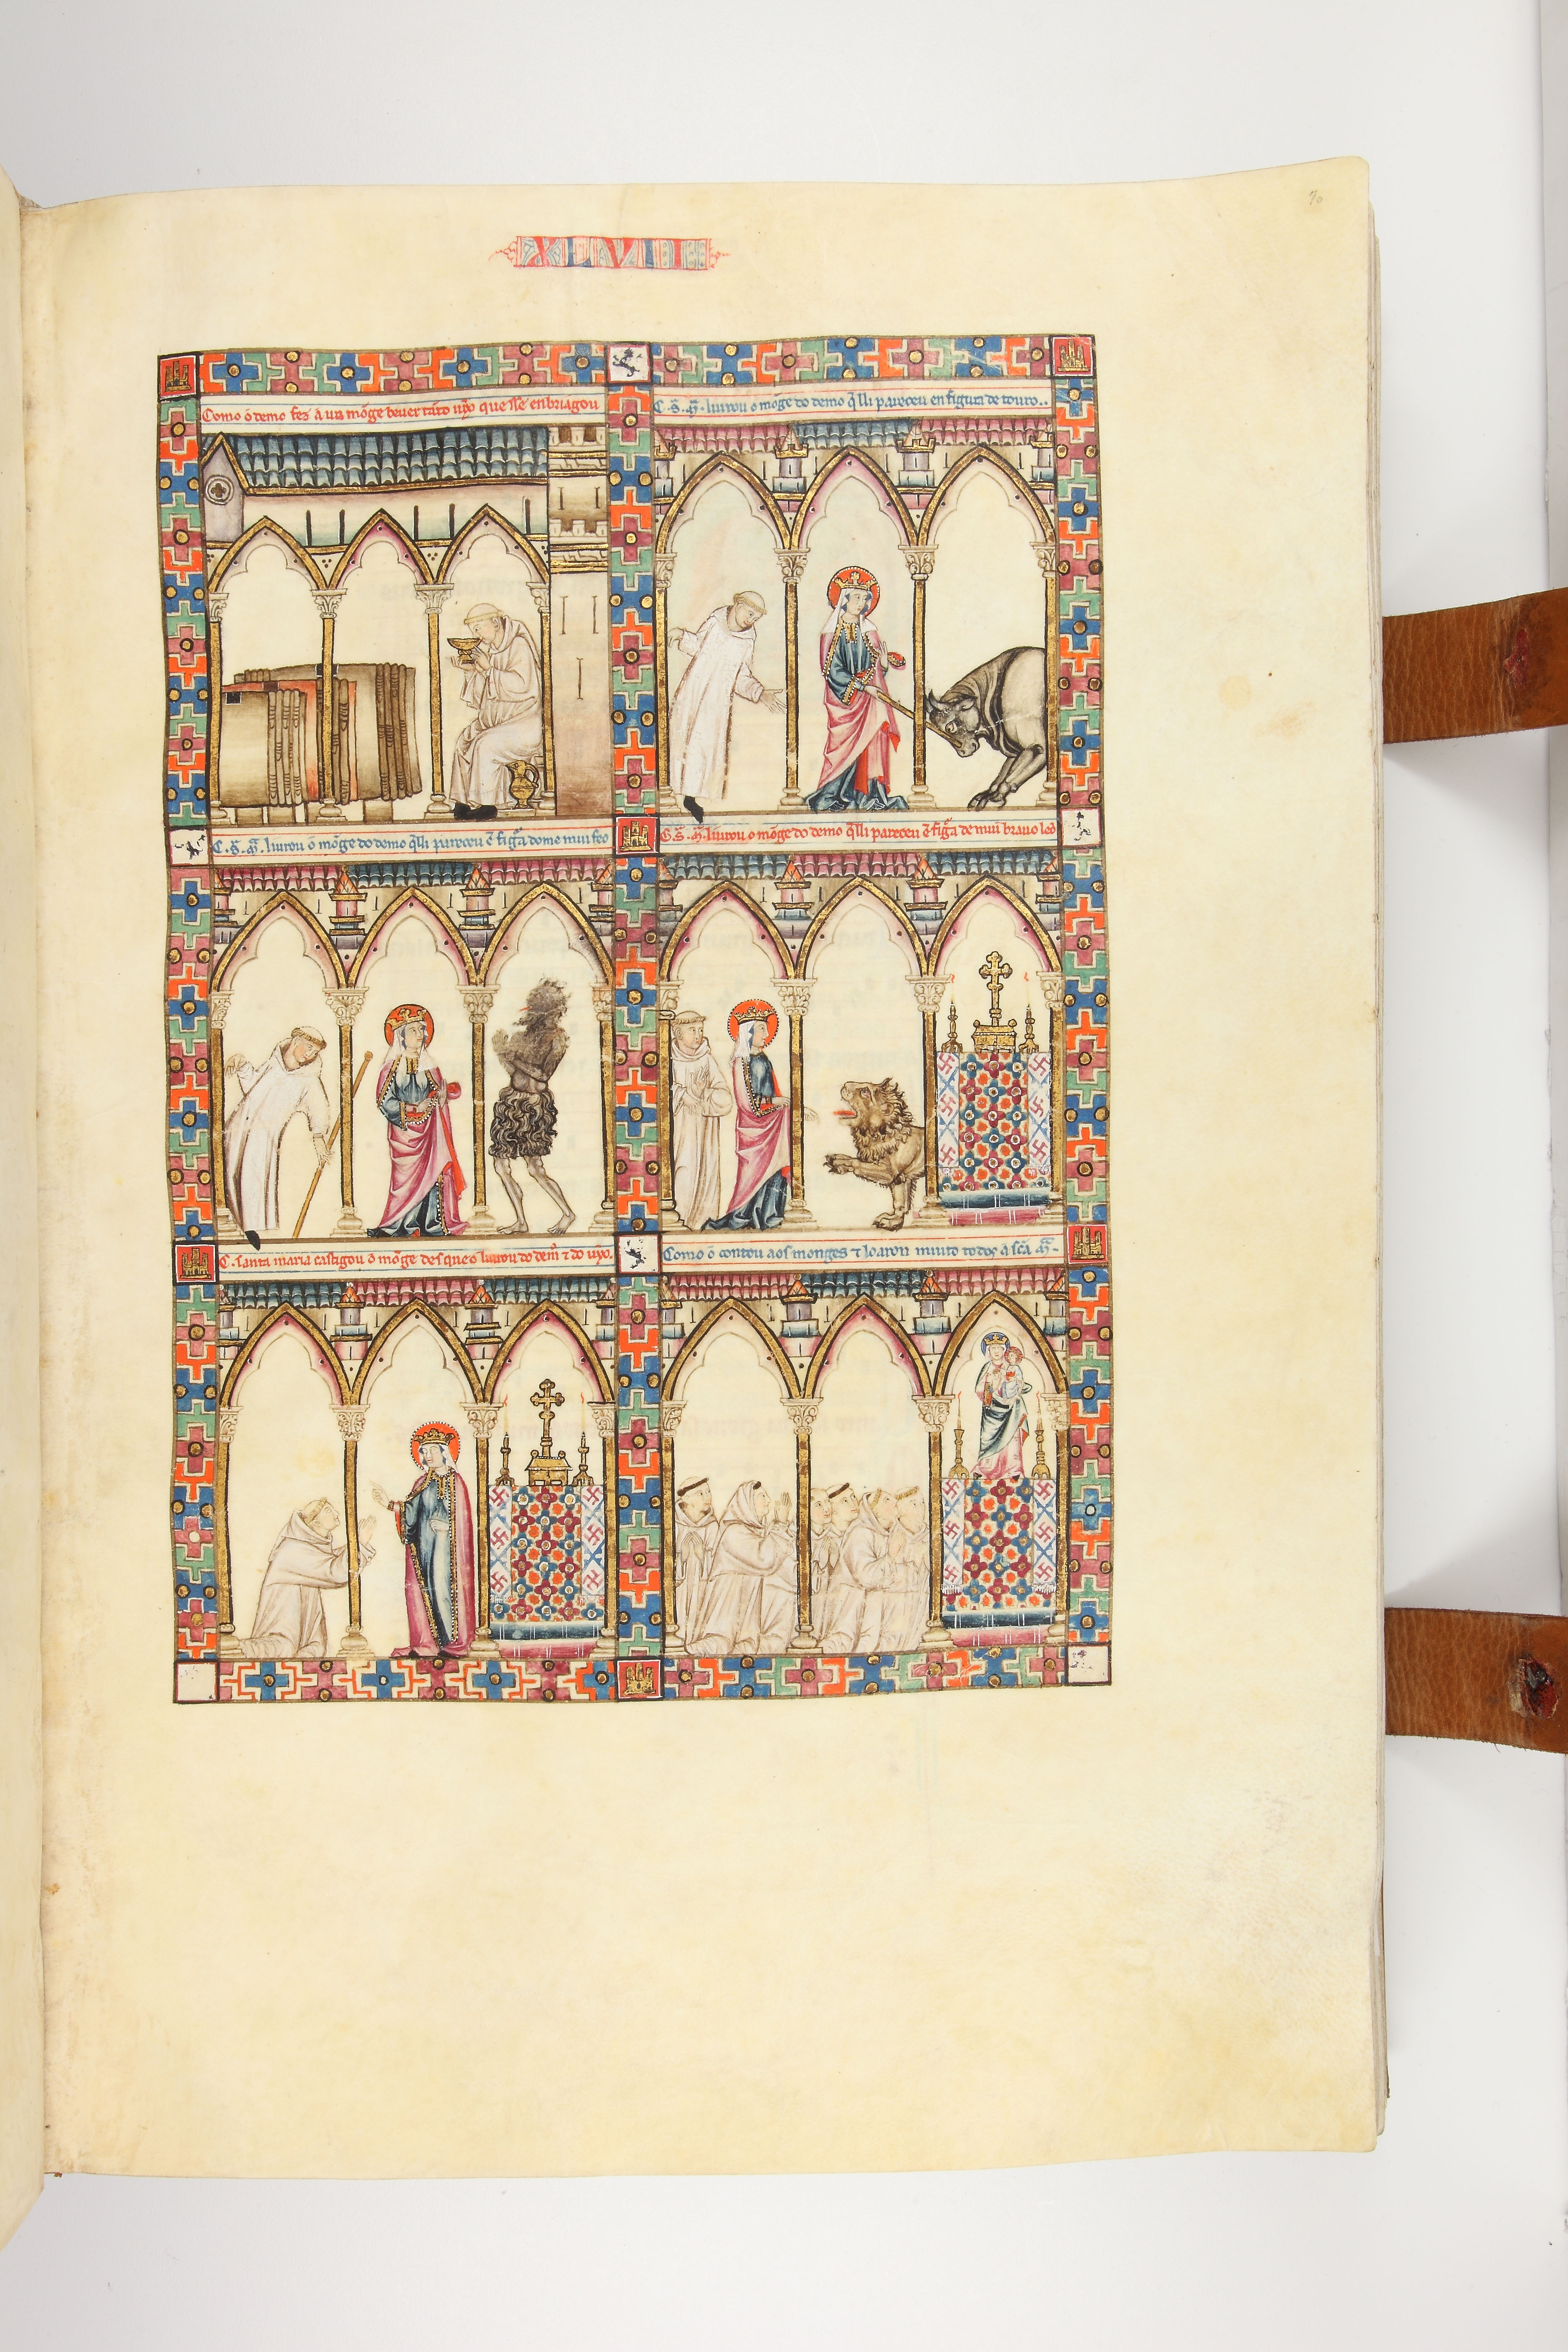 70
XLVII
Como o demo fez a un mõge beuer tãto uỹo que sse enbriagou
C. S. M. liurou o mõge do demo q̃ lli pareceu en figura de touro..
C. S. M. liurou o mõge do demo q̃ lli pareceu ẽ figa dome mui feo
C. S. M. liurou o mõge do demo q̃ lli pareceu ẽ figa de mui brauo leõ
C. santa maria castigou o mõge des que o liurou do dem̃ ⁊ do uỹo.
Como o contou aos monges ⁊ loaron muito todos a sc̃a M̃.